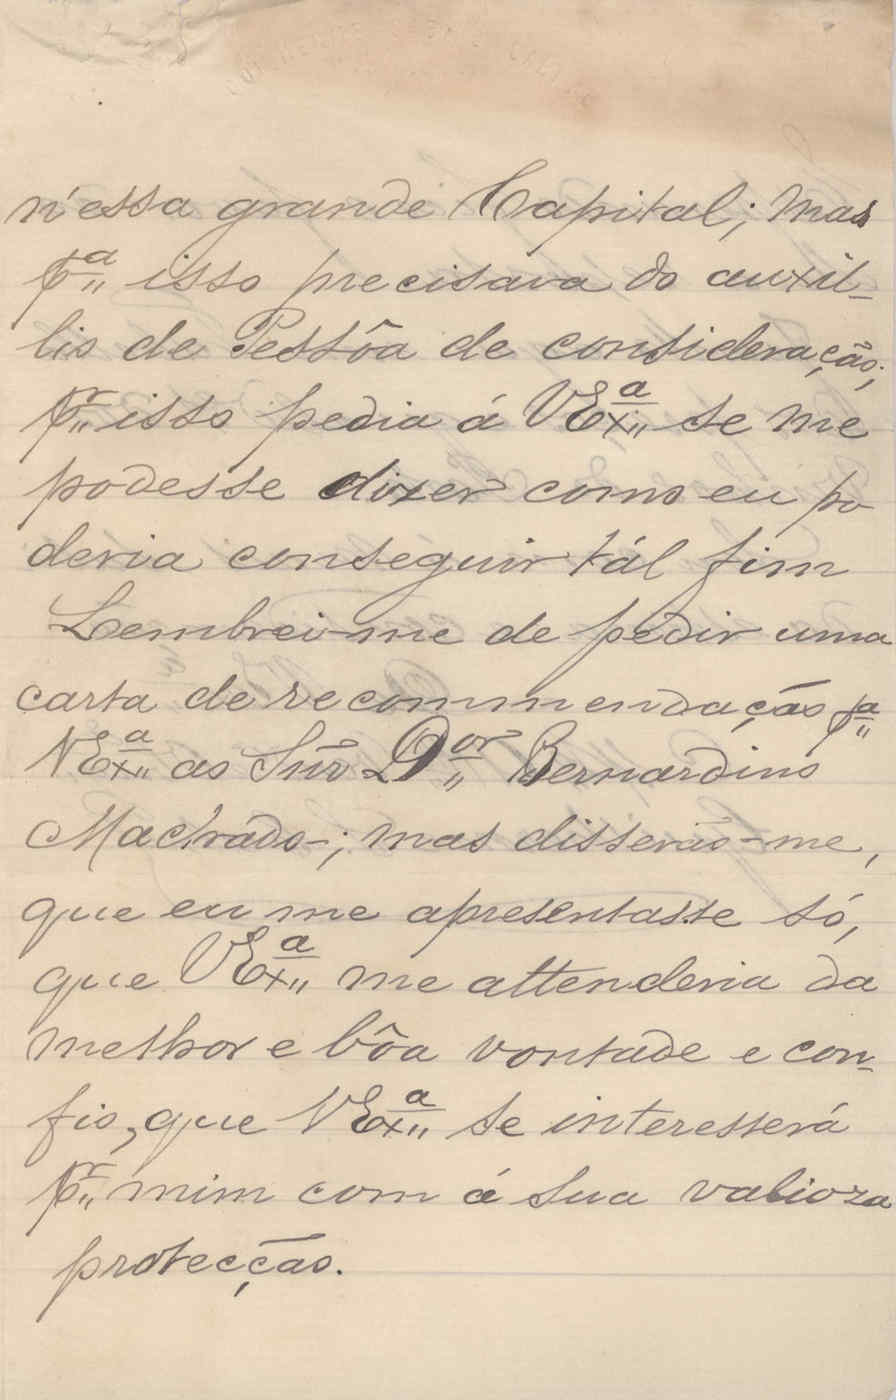 n'essa grande Capital; mas
pª isso precisava do auxil-
lio de Pessôa de consideração;
pr isso pedia á VExª se me
podesse dizer como eu po
deria conseguir tál fim
Lembrei-me de pedir uma
carta de recommendação pª
VExª ao Snr Dor Bernardino
Machado-; mas disserão-me,
que eu me apresentasse só,
que VExª me attenderia da
melhor e bôa vontade e con-
fio, que VExª se interesserá
pr mim com á sua valioza
protecção.